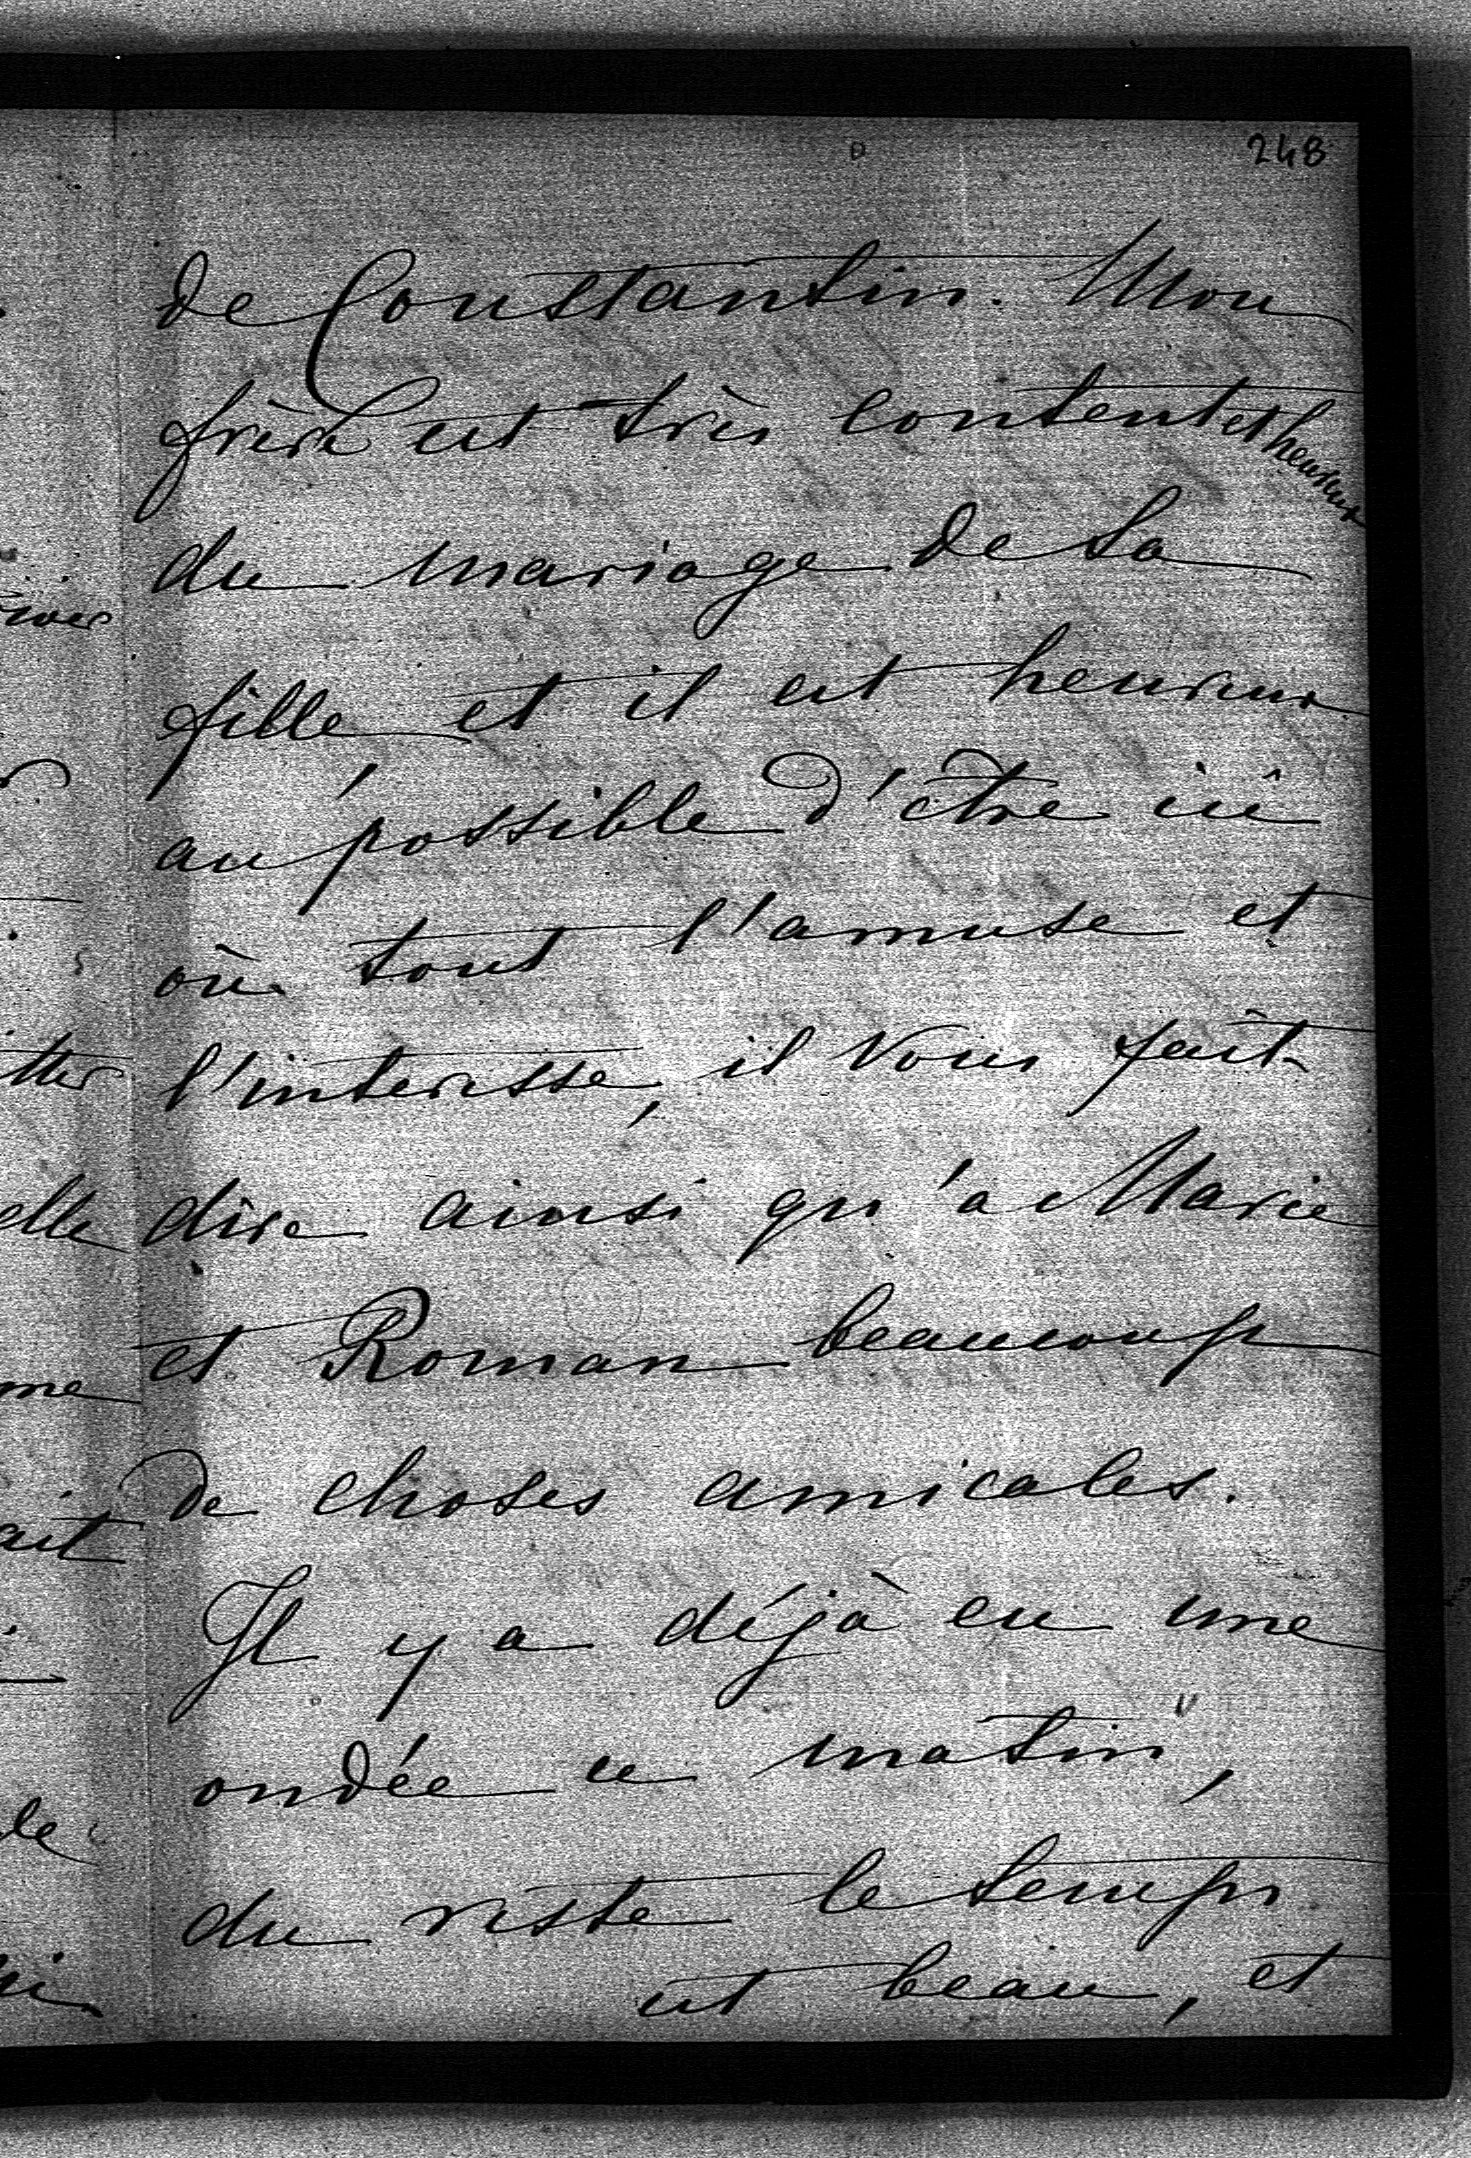 248
de Constantin. Mon
frère est très content et heureux
du mariage de sa
fille et il est heureux
au possible d'être ici
où tout l'amuse et
l'interesse, il vous fait
dire ainsi qu'a Marie
et Roman beaucoup
de choses amicales.
Il y a déjà eu une
ondée ce matin,
du reste le temps
est beau, et